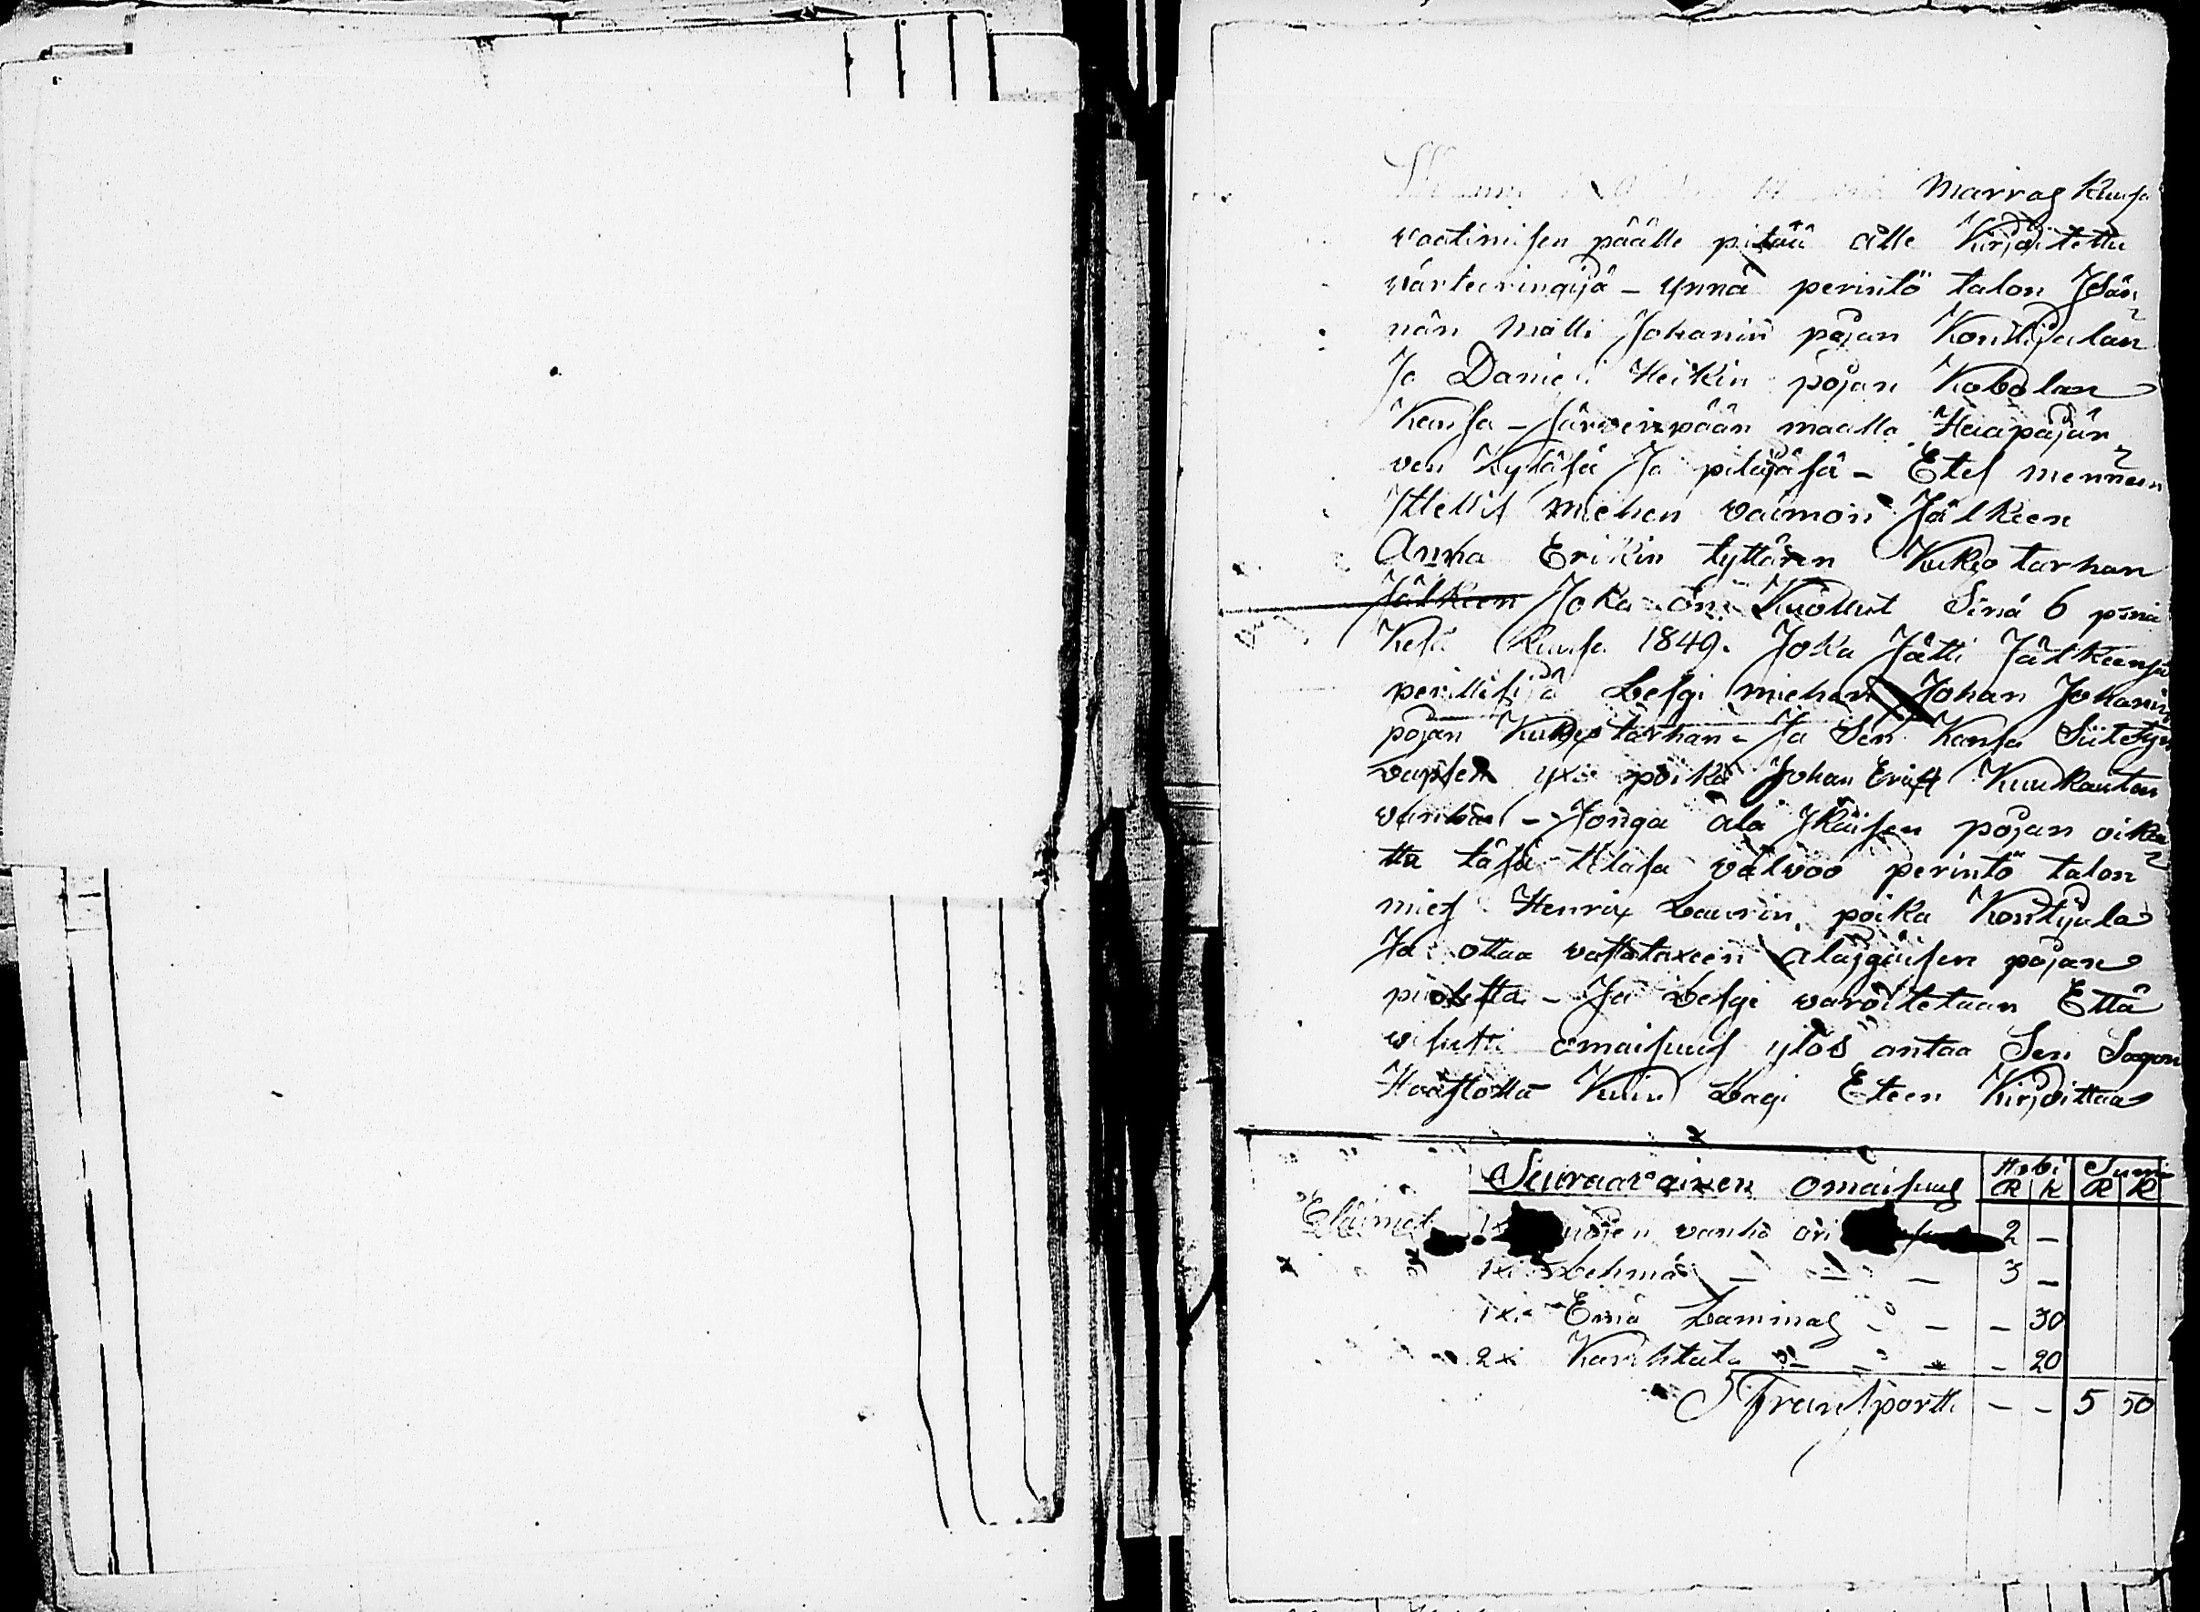 Marras Kuusa
vaatimisen päälle pitää alle Kirjoitettu
värteeringijä - ynnä perintö talon Isän-
nän Matti Johanin pojan Kontijalan
Ja Danieli Heikin pojan Kobolan
Kansa - Järvenpään maalla Haapajär-
ven Kyläsä Ja pitäjäsä - Etes mennen
Ittellis miehen vaimon Jälkeen
Anna Erikin tyttären Kukjo tarhan
Jälkeen Joka on Kuollut Sinä 6 pnä
Kesä Kuusa 1849. Joka Jätti Jälkeensä
perillisijä Leski miehen Johan Johanin
pojan tarhan - Ja Sen Kansa Siitetyn
Lapsen yxi poika Johan Erik Kuukautta
vanha - Jonga ala Ikäisen pojan oikeu-
tta täsä tilasa valvoo perintö talon
mies Henrix Laurin poika Kontijala
Ja ottaa vastataxeen alajgäisen pojan
puolesta - Ja Lesgi varoitetaan Että
omaisuus ylös antaa Sen
Kuin Lagi Eteen Kirjoittaa
Seuraavainen omaisuus Hobi Suma
R K R K
Eläimet 1xi vanha ori 2 —
1xi Lehmä — — — 3 —
1xi Emä Lammas — — — 30
2xi Karihtata — — — — 20
Transportti — — 5 50